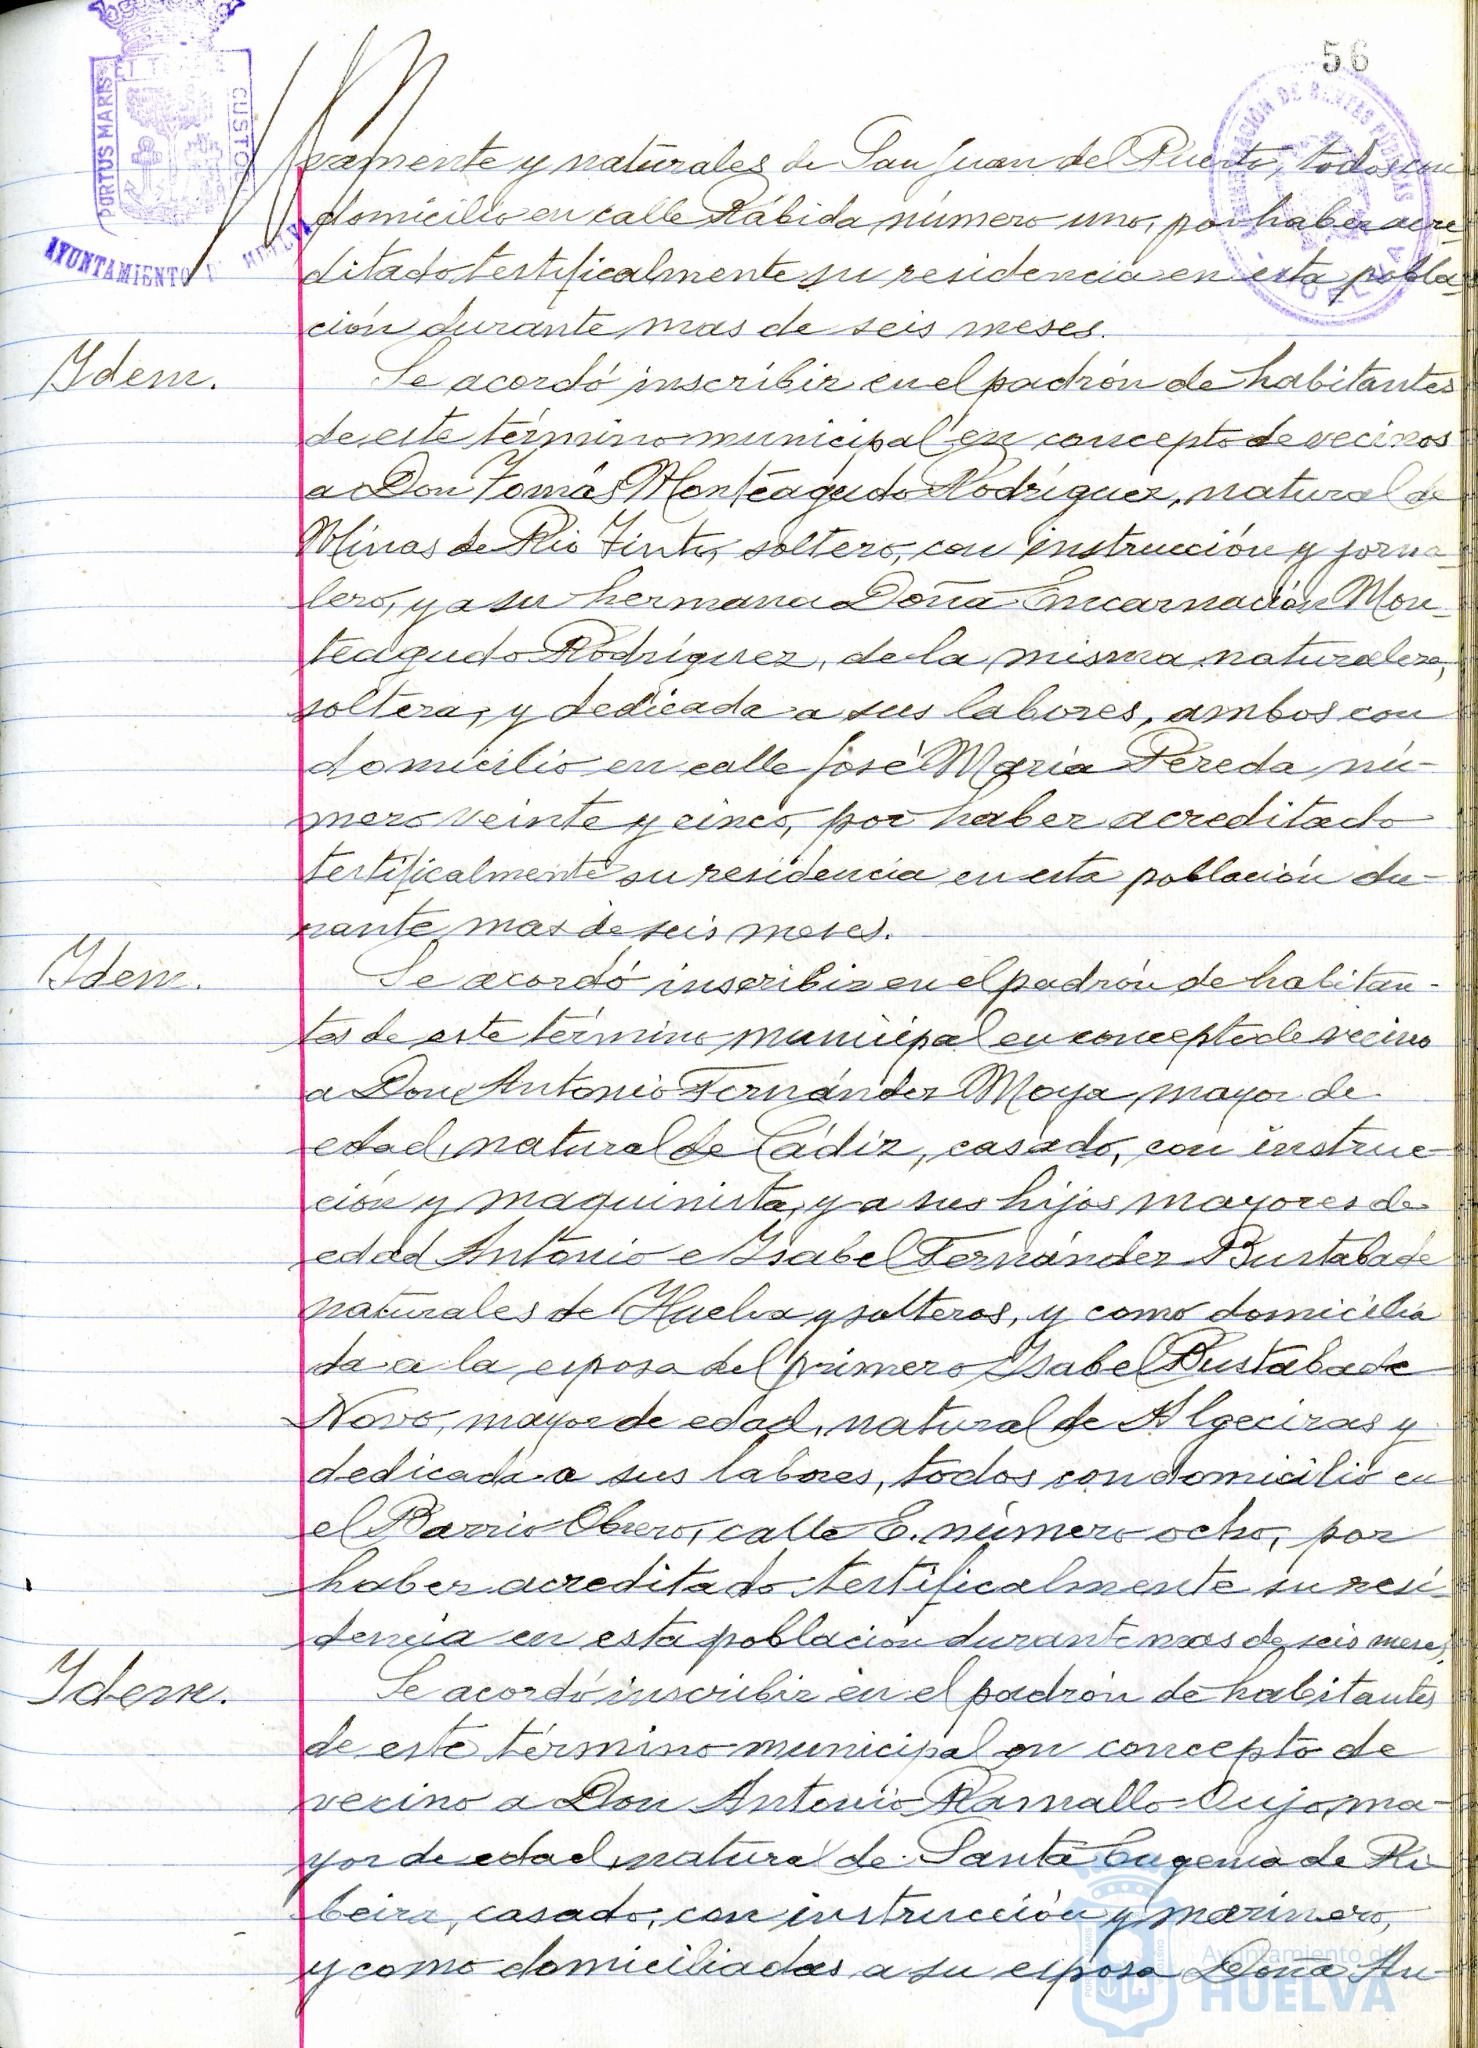 56
PORTUS MARIS ET TERRAE CUSTODIA
AYUNTAMIENTO DE HUELVA
ADMINISTRACIÓN DE RENTAS PÚBLICAS
HUELVA
ramente y naturales de San Juan del Puerto, todos con
domicilio en calle Rábida número uno, por haber acre-
ditado testificalmente su residencia en esta pobla-
ción durante mas de seis meses.
Idem.
Se acordó inscribir en el padrón de habitantes
de este término municipal en concepto de vecinos
a Don Tomás Monteagudo Rodríguez, natural de
Minas de Rio Tinto, soltero, con instrucción y jorna-
lero, y a su hermana Doña Encarnación Mon-
teagudo Rodríguez, de la misma naturaleza,
soltera, y dedicada a sus labores, ambos con
domicilio en calle José María Pereda nú-
mero veinte y cinco, por haber acreditado
testificalmente su residencia en esta población du-
rante mas de seis meses.
Idem.
Se acordó inscribir en el padrón de habitan-
tes de este término municipal en concepto de vecino
a Don Antonio Fernández Moya, mayor de
edad, natural de Cádiz, casado, con instruc-
ción y maquinista, y a sus hijos mayores de
edad Antonio e Isabel Fernández Bustabade
naturales de Huelva y solteros, y como domicilia
da a la esposa del primero Isabel Bustabade
Novo, mayor de edad, natural de Algeciras y
dedicada a sus labores, todos con domicilio en
el Barrio Obrero, calle E. número ocho, por
haber acreditado testificalmente su resi-
dencia en esta población durante mas de seis meses.
Idem.
Se acordó inscribir en el padrón de habitantes
de este término municipal en concepto de
vecino a Don Antonio Ramallo Oujo, ma-
yor de edad, natural de Santa Eugenia de Ri
beira, casado, con instrucción y marinero,
y como domiciliadas a su esposa Doña Au-
Ayuntamiento de
HUELVA